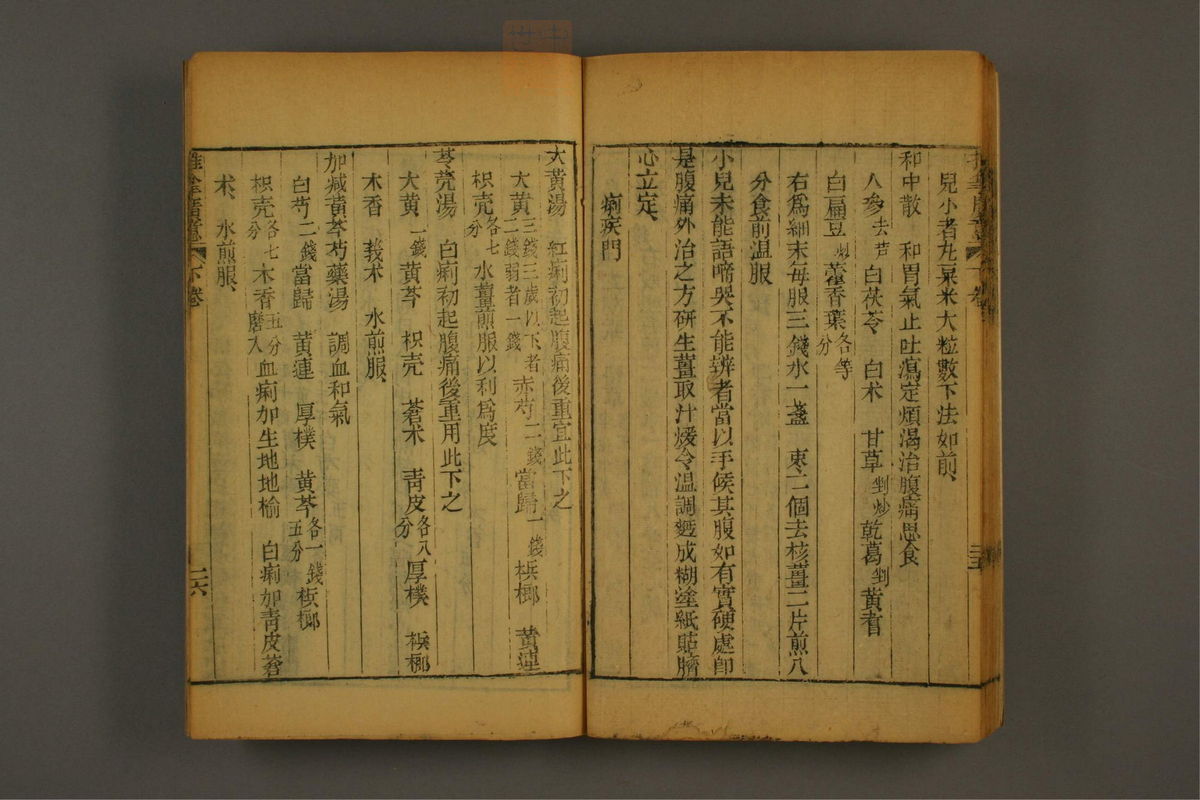 兒小者丸粟米大粒數下法如前、
和中散　和胃氣止吐瀉定煩渴治腹痛思食
人參去芦　白茯苓　白朮　甘草剉炒　乾葛剉　黄耆
白扁豆炒　藿香葉各等分
右爲細末每服三錢水一盞　棗二個去核薑二片煎八
分食前温服
小兒未能語啼哭不能辨者當以手候其腹如有實硬處卽
是腹痛外治之方研生薑取汁煖令温調麪成糊塗紙貼臍
心立定、
痢疾門
大黄湯　紅痢初起腹痛後重宜此下之
大黄三錢三歲以下者二錢弱者一錢　赤芍二錢　當歸一錢　梹榔　黄連
枳壳各七分　水薑煎服以利爲度
芩莞湯　白痢初起腹痛後重用此下之
大黄一錢　黄芩　枳壳　蒼朮　靑皮各八分　厚樸　梹榔
木香　莪朮　水煎服、
加减黄芩芍藥湯　調血和氣
白芍二錢　當歸　黄連　厚樸　黄芩各一錢五分　梹榔
枳壳各七分　木香五分磨入　血痢加生地地榆　白痢加靑皮蒼
朮、水煎服、
下卷
二六